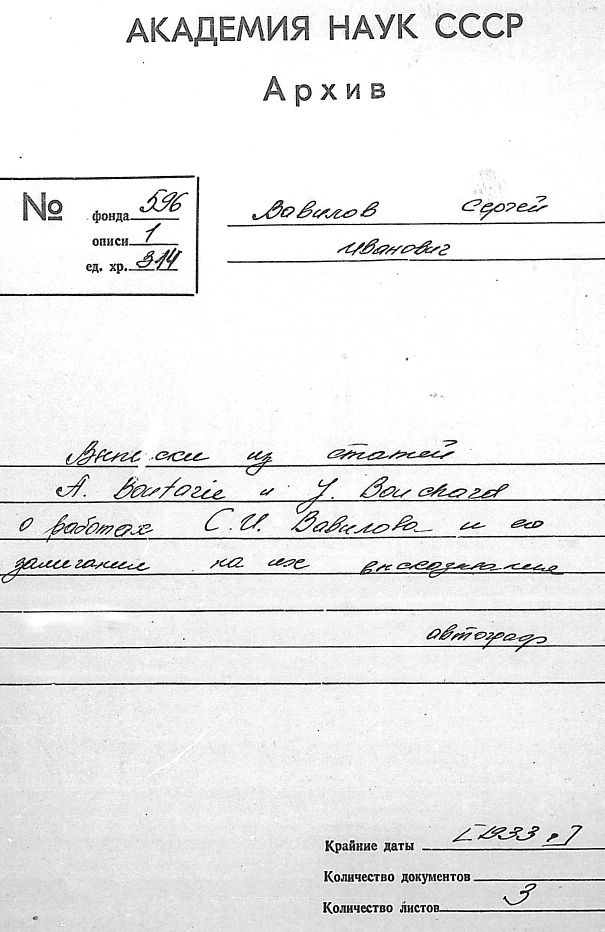 АКАДЕМИЯ НАУК СССР
Архив
№
фонда 596
описи 1
ед. хр. 314
Вавилов Сергей
Иванович
Выписки из статей
A. Boutarie и J. Bouchard
о работах С.И. Вавилова и его
замечания на их высказывания
автограф
Крайние даты [1933 г.]
Количество документов
Количество листов 3